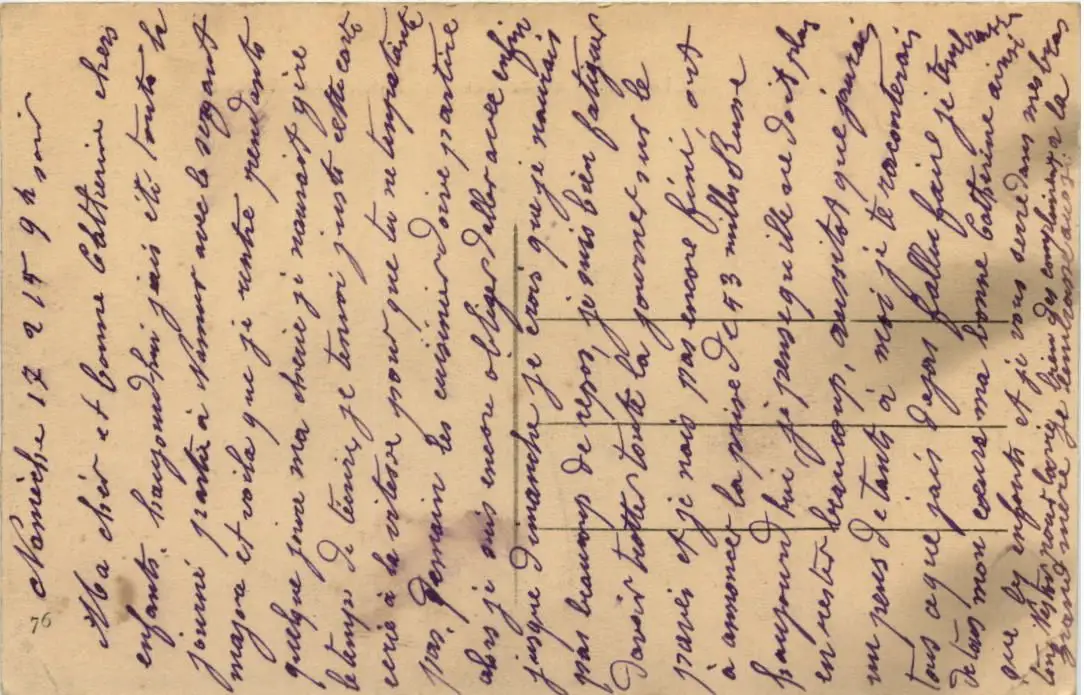 Namêche 17 2 15 9h soir
Ma chér et bonne Cathterine chers
enfants, haujoudhui jais été toute la
journé partie à Namur avec le segant
majore et voila que je rentre pendants
quelque joure ma cherie je naurait gire
le temp de técrire, je tenvoi juste cette carte
ecrie à la vitesse pour que tu ne timpatiente
pas. Demain les cuisinier doive partire
alors je suis encore obliger daller avec enfin
jusque dimanche je crois que je naurais
pas beaucoup de repos, je suis bien fatiguer
davoir trotter toute la journer sur le
pavés et je nais pas encore fini, ont
à annoncer la prise de 53 mille Russe
haujourd hui je pense quille ne doit plus
en rester beaucoup, aussitot que jaurai
un peus de tants à moi je te raconterais
tous ce que jais dejas fallu faire je
de tous mon coeurs ma bonne Catherine ainsi
que les enfants et je vous serre dans mes bras
bien des compliments à la
grand mere je lembrasse aussi
76